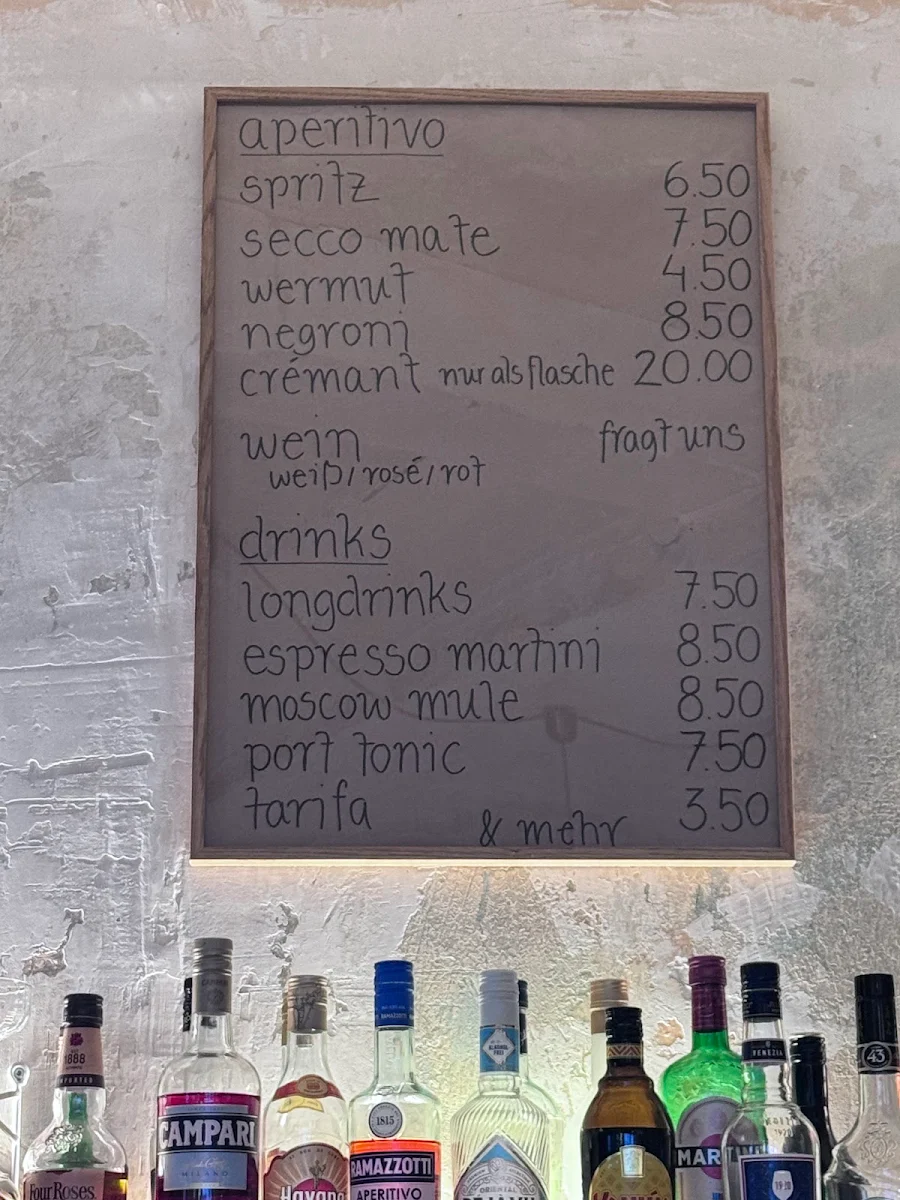 aperitivo
spritz 6.50
secco mate 7.50
wermut 4.50
negroni 8.50
crémant nur als flasche 20.00
wein fragt uns
weiß/rosé/rot
drinks
longdrinks 7.50
espresso martini 8.50
moscow mule 8.50
port tonic 7.50
tarifa 3.50
& mehr
1888
FourRoses
CAMPARI
MILANO
Havana
1815
RAMAZZOTTI
APERITIVO
ALCOHOL-FREE
ORIGINAL
MARTINI
VENEZIA
1920
43